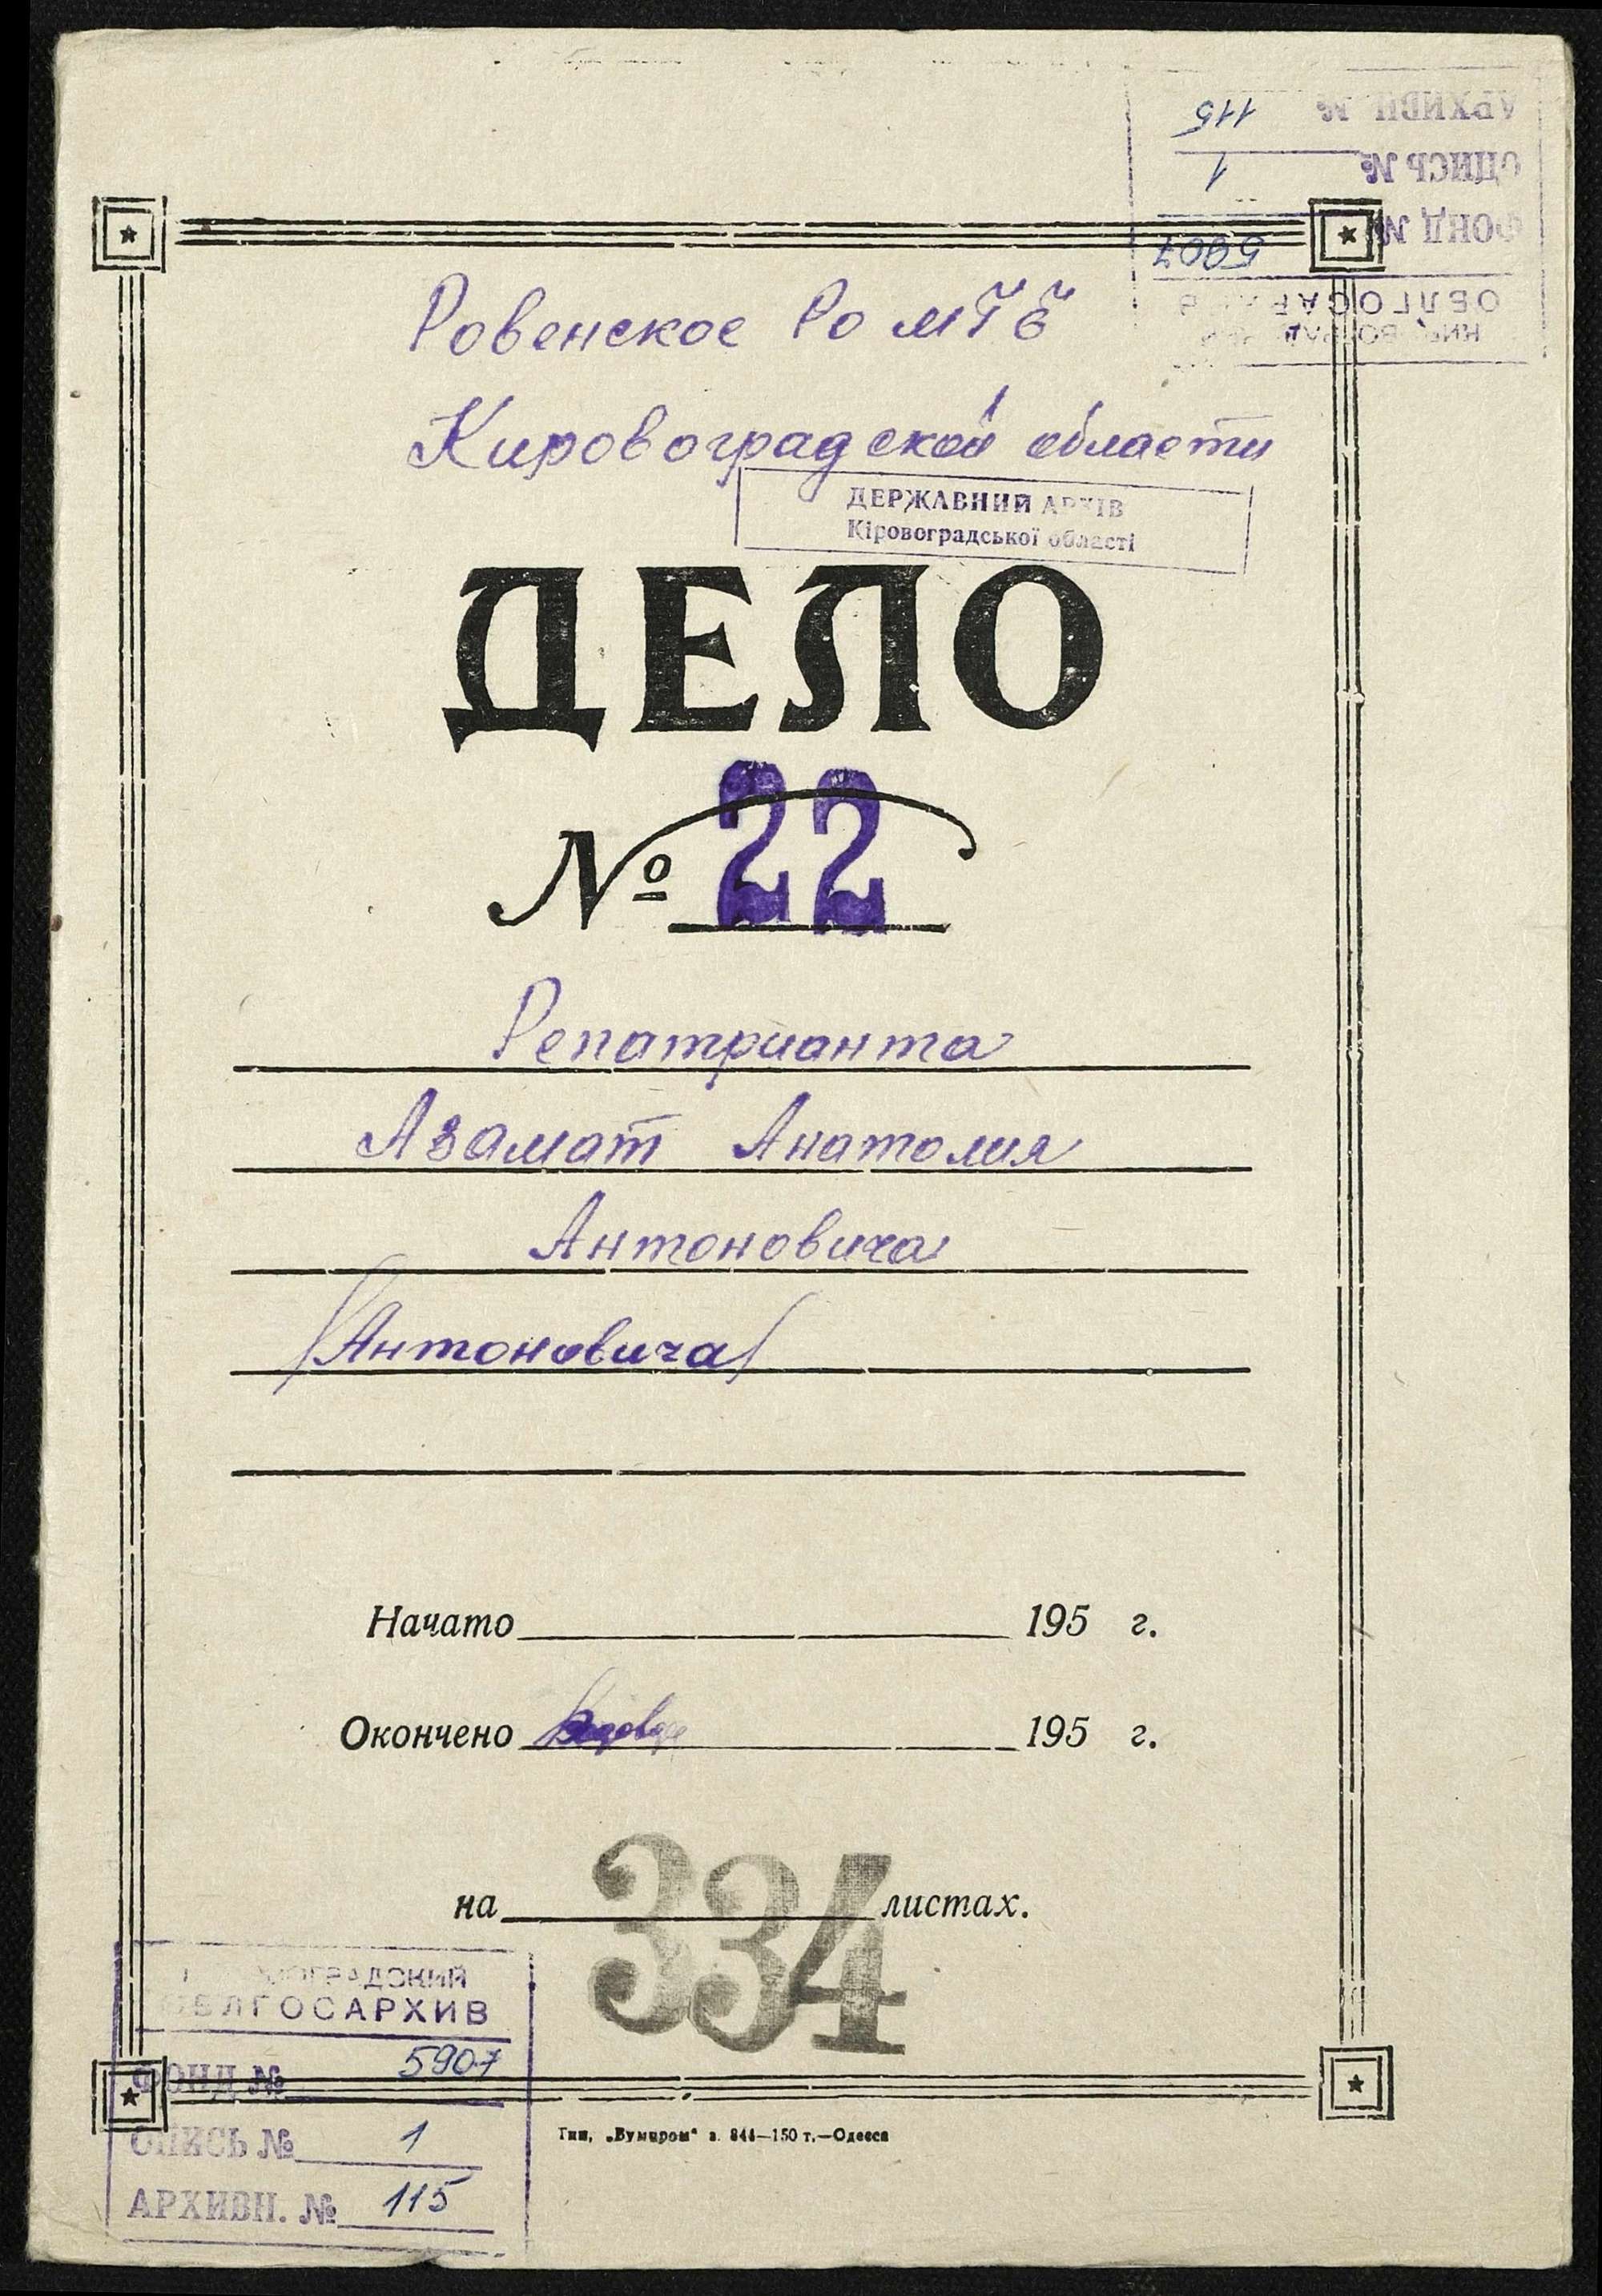 АРХИВН. № 115
ОПИСЬ № 1
ФОНД № 5907
ОБЛГОСАРХИВ
Ровенское Ро МГБ
Кировоградской области
ДЕРЖАВНИЙ АРХІВ
Кіровоградської області
ДЕЛО
№ 22
Репатрианта
Азамат Анатолия
Антоновича
/Антоновича/
Начато 195 г.
Окончено 195 г.
на листах.
334
КИРОВОГРАДСКИЙ
ОБЛГОСАРХИВ
ФОНД № 5907
ОПИСЬ № 1
АРХИВН. № 115
Тип. „Бумпром“ з. 844—150 т.—Одесса